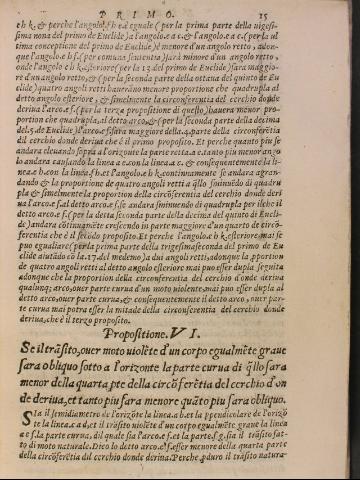 PRIMO. 15
e h k. & perche l'angolo. f h e. è eguale (per la prima parte della uigesi-
sima nona del primo de Euclide) a l'angolo. e a c. & l'angolo. e a c. (per la ul
tima conceptione del primo de Euclide) è menor d'un angolo retto, adon-
que l'angolo. e h f. (per comuna sententia) sarà minore d'un angolo retto,
onde l'angolo e h k. esteriore (per la 13. del primo de Euclide) sara maggio-
re d'un angolo retto, & (per la seconda parte della ottaua del quinto de Eu
clide) quatro angoli retti haueráno menore proportione che quadrupla al
detto angolo esteriore, & similmente la circonferentia del cerchio donde
deriua l'arco. e f. (per la terza propositione di questo) hauera menor pro-
portion che quadrupla, al detto arco, & (per la seconda parte della decima
del. 5. de Euclide) l'arco. e f. sara maggiore della. 4. parte della circonferẽtia
del cerchio donde deriua che è il primo proposito. Et perche quanto piu se
andara eleuando sopra a l'orizonte la parte retta. a e. tanto piu menor ango
lo andara causando la linea a e. con la linea a c. & consequentemente la li-
nea. e h. con la linea. f h. et l'angolo. e h k. continuamente se andara agran-
dando & la proportione de quatro angoli retti a q̃llo sminuẽdo di quadru
pla & similmente la proportion della circõferentia del cerchio donde deri
ua l'arco. e f. al detto arco. e f. se andara sminuendo di quadrupla per ilche il
detto arco. e f. (per la detta seconda parte della decima del quinto de Eucli-
de) andara cõtinuamẽte crescendo in parte maggiore d'un quarto de circõ-
ferentia che è il secõdo proposito. Et perche l'angolo. e h k. esteriore, mai se
puo egualiare (per la prima parte della trigesimaseconda del primo de Eu
clide aiutãdo cõ la. 17. del medemo) a dui angoli retti, adonque la, pportion
de quatro angoli retti al detto angolo esteriore mai puo esser dupla seguita
adonque che la proportion della circonferentia del cerchio d'onde deriua
qualunq; arco, ouer parte curua d'un moto uiolente, mai puo esser dupla al
detto arco, ouer parte curua, & consequentemente il detto arco, ouer par-
te curua mai potra esser la mita della circonferentia del cerchio donde
deriua, che è il terzo proposito.
Propositione. VI.
Se il trãsito, ouer moto violẽte d'un corpo egualmẽte graue
sara obliquo sotto a l'orizonte la parte curua di q̃llo sara
menor della quarta pte della circõferẽtia del cerchio d'on
de deriua, et tanto piu sara menore quãto piu sara obliquo.
Sia il semidiametro de l'orizõte la linea. a b. et la ppendicolare de l'orizõ
te la linea. c a d, et il trãsito uiolẽte d'un corpo egualmẽte graue la linea
a e f. la parte curua, dil quale sia l'arco. e f. et la parte. f g. sia il trãsito fat-
to di moto naturale. Dico lo detto arco. e f. esser menore della quarta parte
della circõferẽtia del cerchio donde deriua. Perche, pduro il trãsito natura-